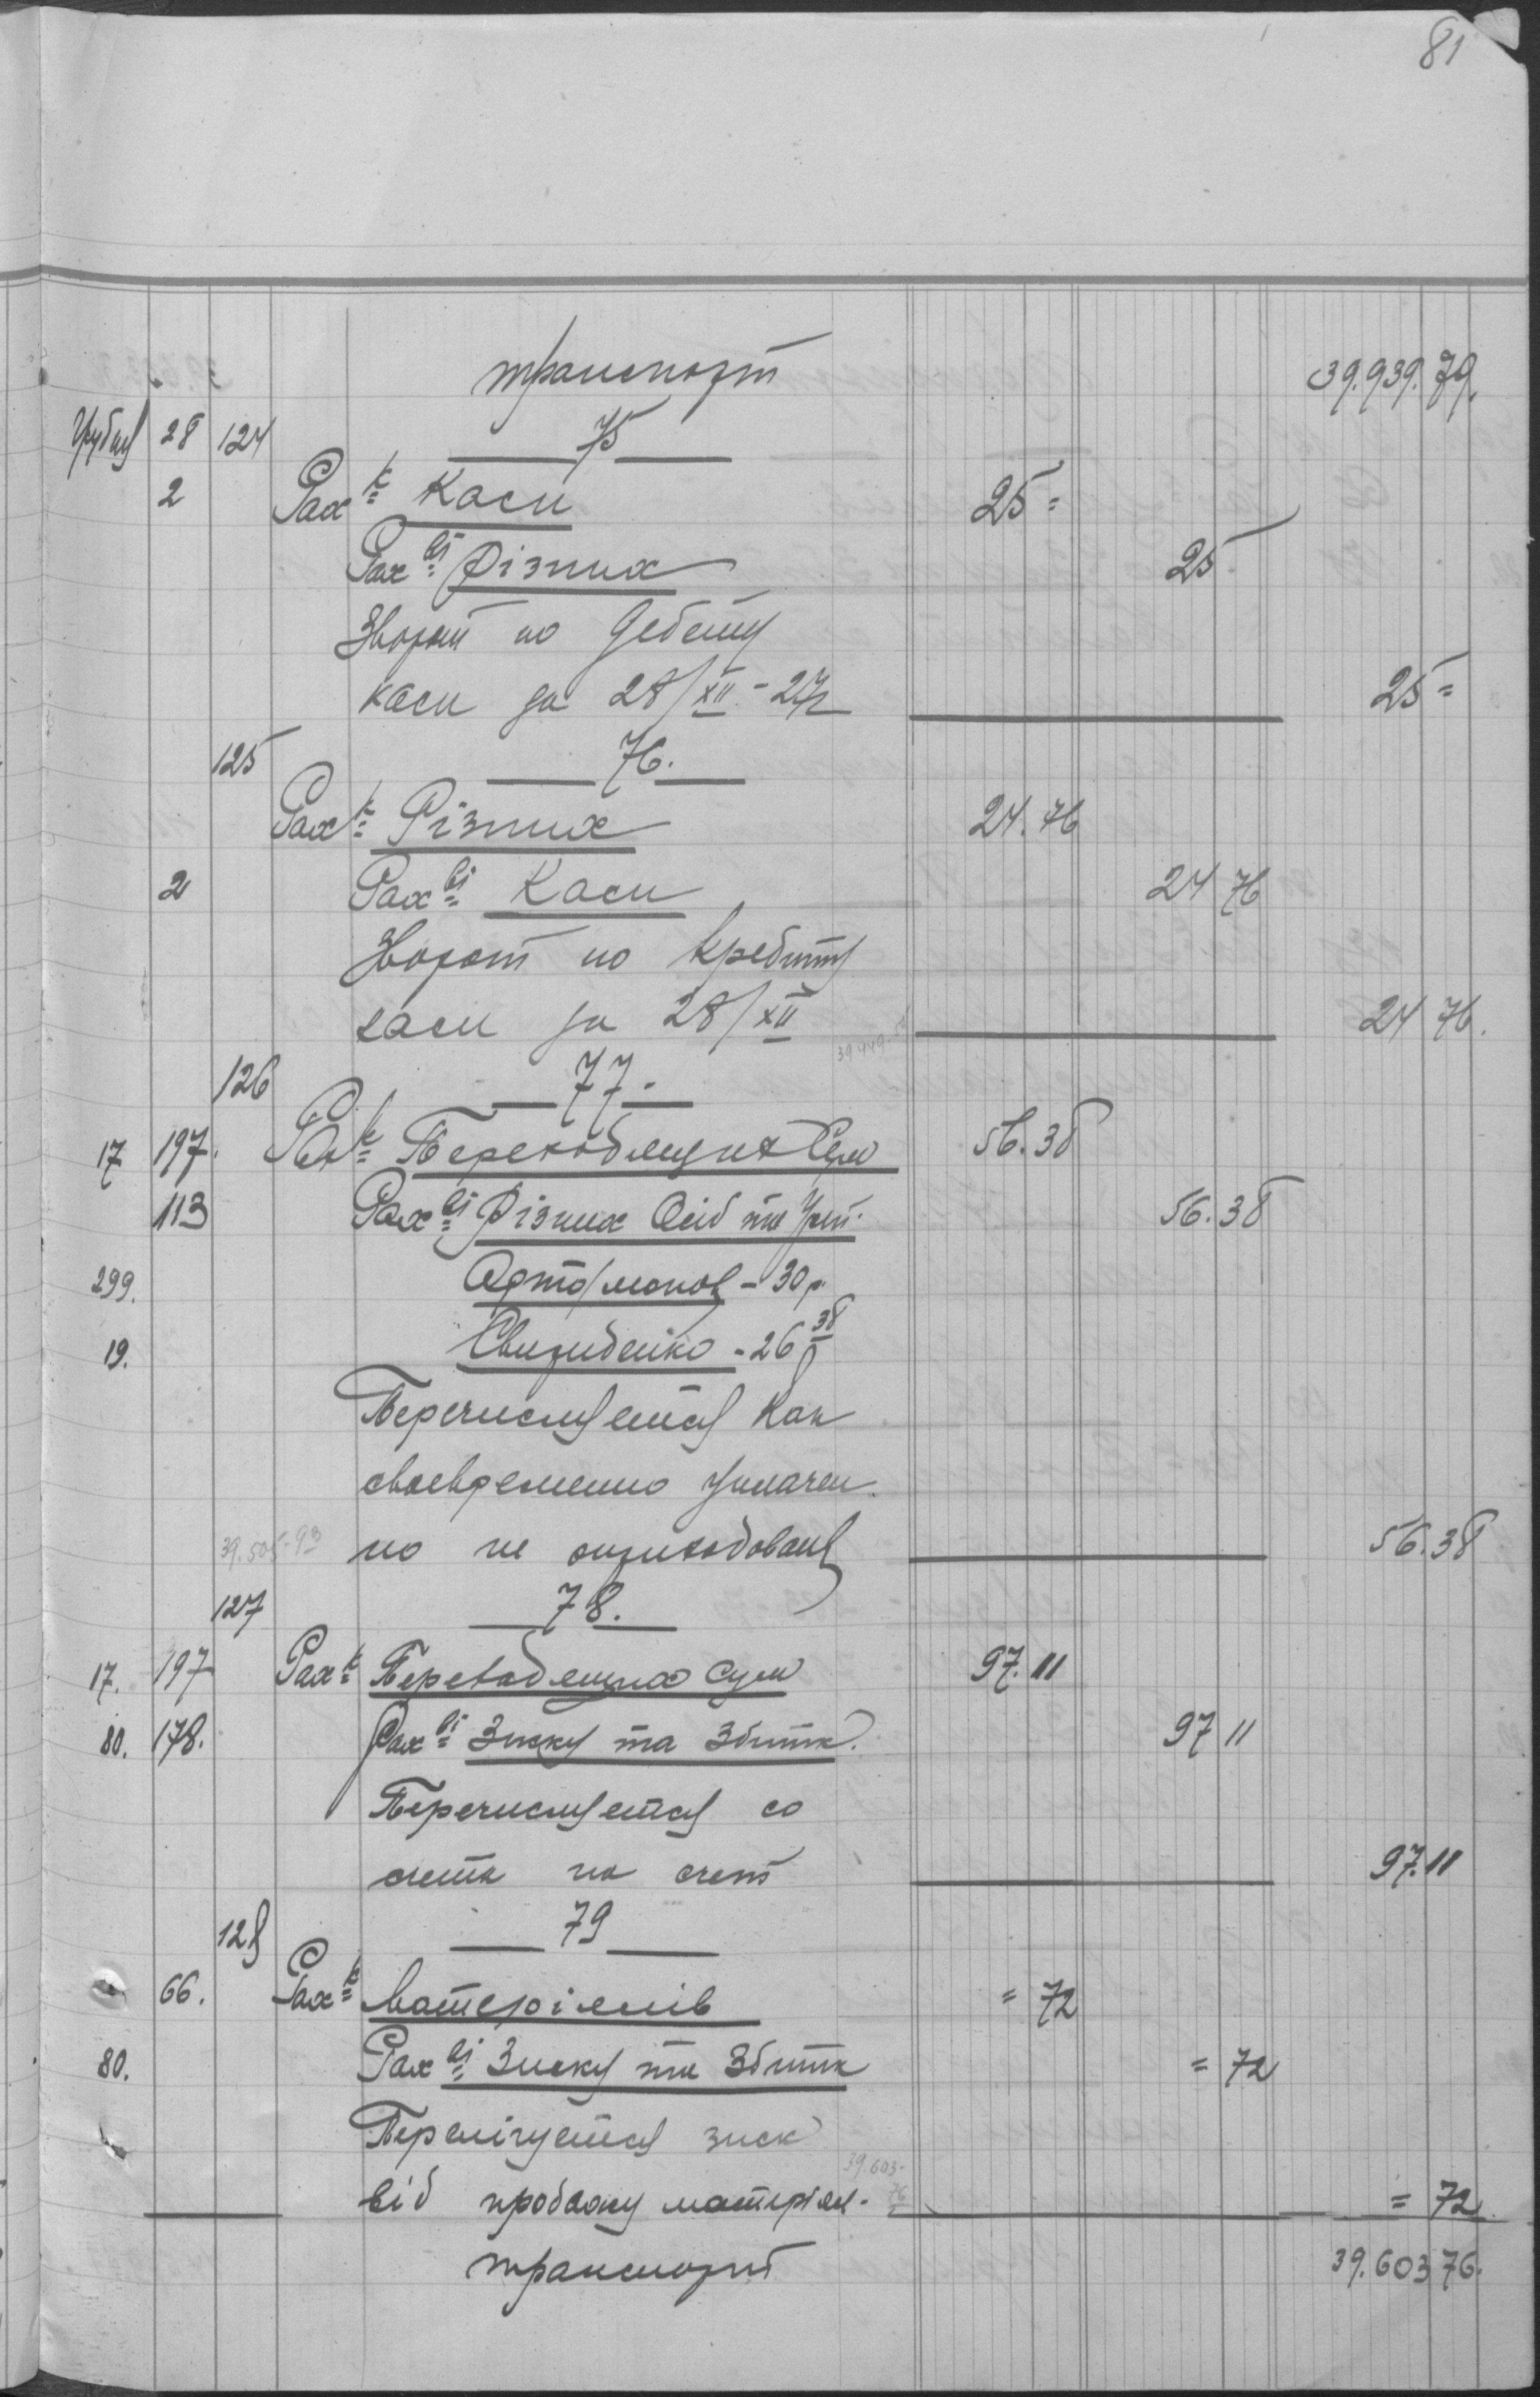 81
транспорт 39.939.79.
Грудня 28 124 75
2 Рах-к Каси 25=
Рах-ві Різних 25
Зворот по Дебету
каси за 28/XII-27р 25=
125 76.
Рах-к Різних 24.76
2 Рах-ві Каси 24 76
Зворот по Кредиту
каси за 28/XII 24 76.
39449.
126 77.
17 197. Рах-к Переходящих Сум 56.38
113 Рах-ві Різних Осіб та Уст. 56.38
299. Артамонов - 30р.
19. - 26р 38
Перечисляется Как
своевременно уплачен.
но не оприходована 56.38
39.505-93
127 78.
17. 197 Рах-к Переходящих Сум 97.11
80. 178. Рах-ві Зиску та Збитк. 97 11
Перечисляется со
счета на счет 97.11
128 79
66. Рах-к Матеріялів = 72
80. Рах-ві Зиску та Збитк = 72
Перелічується зиск
39.603-76
від продажу матеріял. = 72
транспорт 39.603 76.